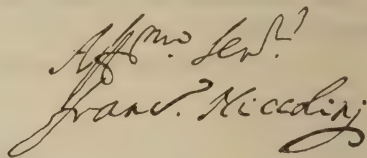 Aff.mo Ser.r
Franc.o Niccolinj